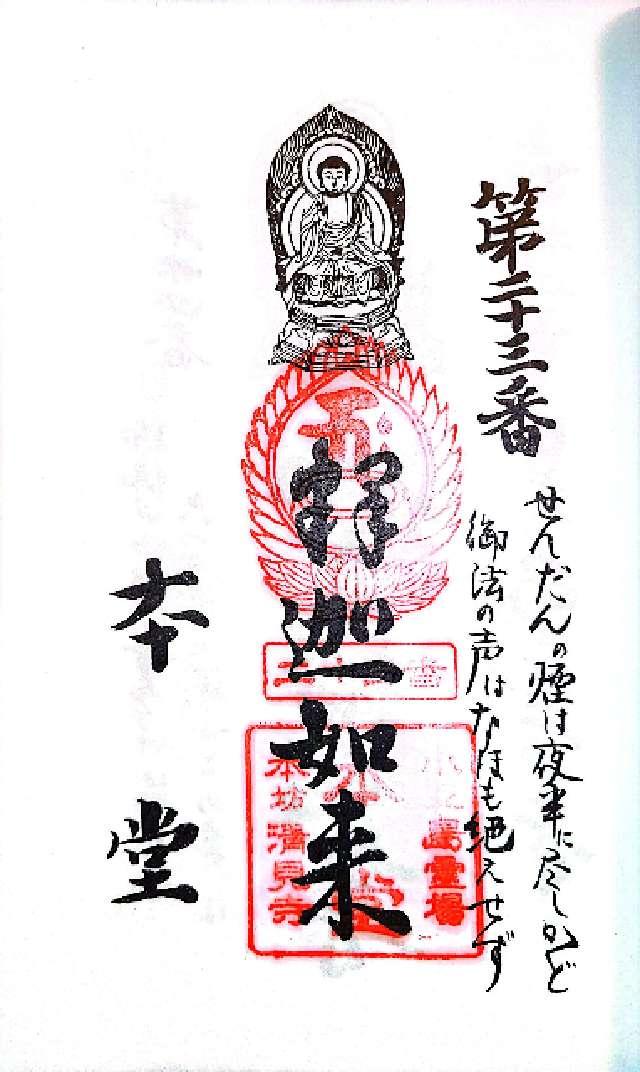 第二十三番
せんだんの煙は夜半に尽しかど
御法の声はなほも絶えせず
釋迦如来
二十三番
小豆島霊場
本堂
本坊清見寺
本堂